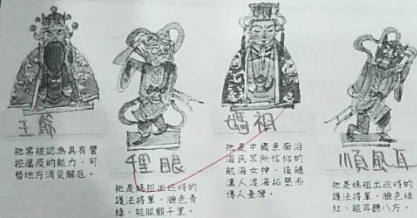 王爺
祂常被認為具有掌
控瘟疫的能力，可
替地方消災解厄。
理眼
祂是媽祖出巡時的
護法將軍，臉色青
綠，能眼觀千里。
媽祖
祂是中國東南沿
海民眾所信仰的
航海女神，後隨
漢人渡海拓墾而
傳入臺灣。
順風耳
祂是媽祖出巡時的
護法將軍，臉色緋
紅，能耳聽八方。